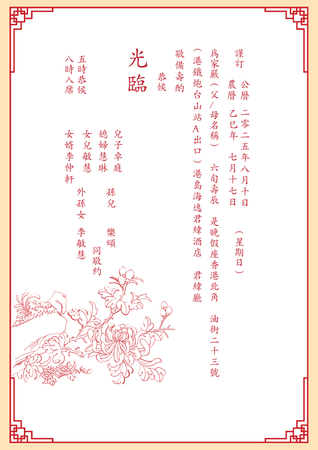 謹訂 公曆 二零二五年八月十日 (星期日)
農曆 乙巳年 七月十七日
爲家嚴(父/母名稱) 六旬壽辰 是晚假座香港北角 油街二十三號
(港鐵炮台山站A出口)港島海逸君綽酒店 君綽廳
敬備壽酌
恭候
光臨
兒子卓庭 孫兒 樂頌
媳婦慧琳
女兒敏慧 外孫女 李敏慧
女婿李仲軒
同敬約
五時恭候
八時入席